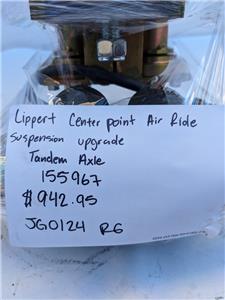 Lippert Center point Air Ride
Suspension upgrade
Tandem Axle
155967
$942.95
JG0124 RG